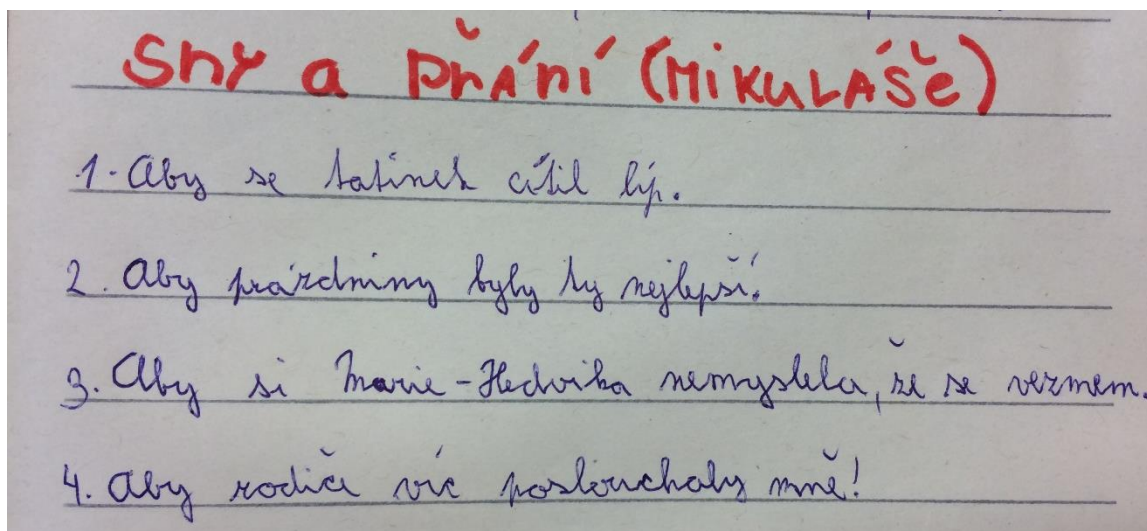 Sny a přání (Mikuláše)
1. Aby se tatínek cítil líp.
2. Aby prázdniny byly ty nejlepší.
3. Aby si Marie-Hedvika nemyslela, že se vezmem.
4. Aby rodiče víc poslouchaly mně!